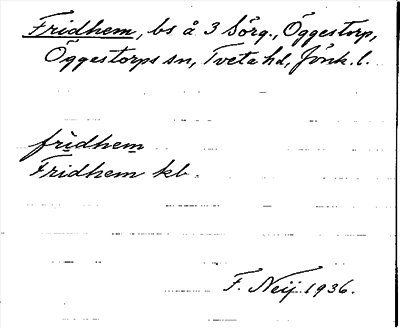 Fridhem, bs å 3 Sörg., Öggestorp,
Öggestorps sn, Tveta hd, Jönk. l.
fridhem
Fridhem kb.
F. Neij 1936.